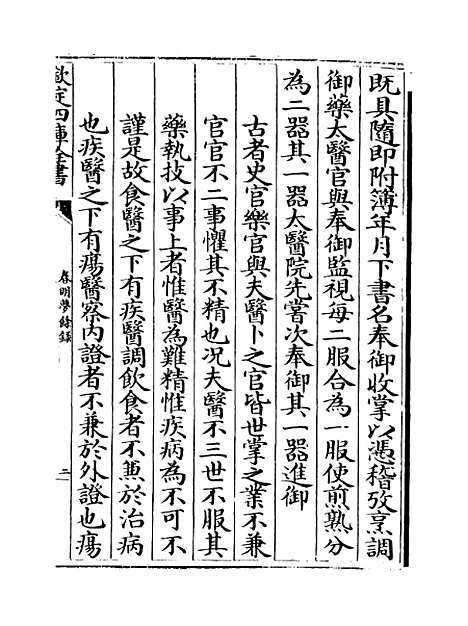 既具隨即附簿年月下書名奉御收掌以憑稽攷烹調
御藥太醫官與奉御監視每二服合為一服使煎熟分
為二器其一器太醫院先嘗次奉御其一器進御
古者史官樂官與夫醫卜之官皆世掌之業不兼
官官不二事懼其不精也况夫醫不三世不服其
藥執技以事上者惟醫為難精惟疾病為不可不
謹是故食醫之下有疾醫調飲食者不兼於治病
也疾醫之下有瘍醫察内證者不兼於外證也瘍
欽定四庫全書
春明夢餘錄
二